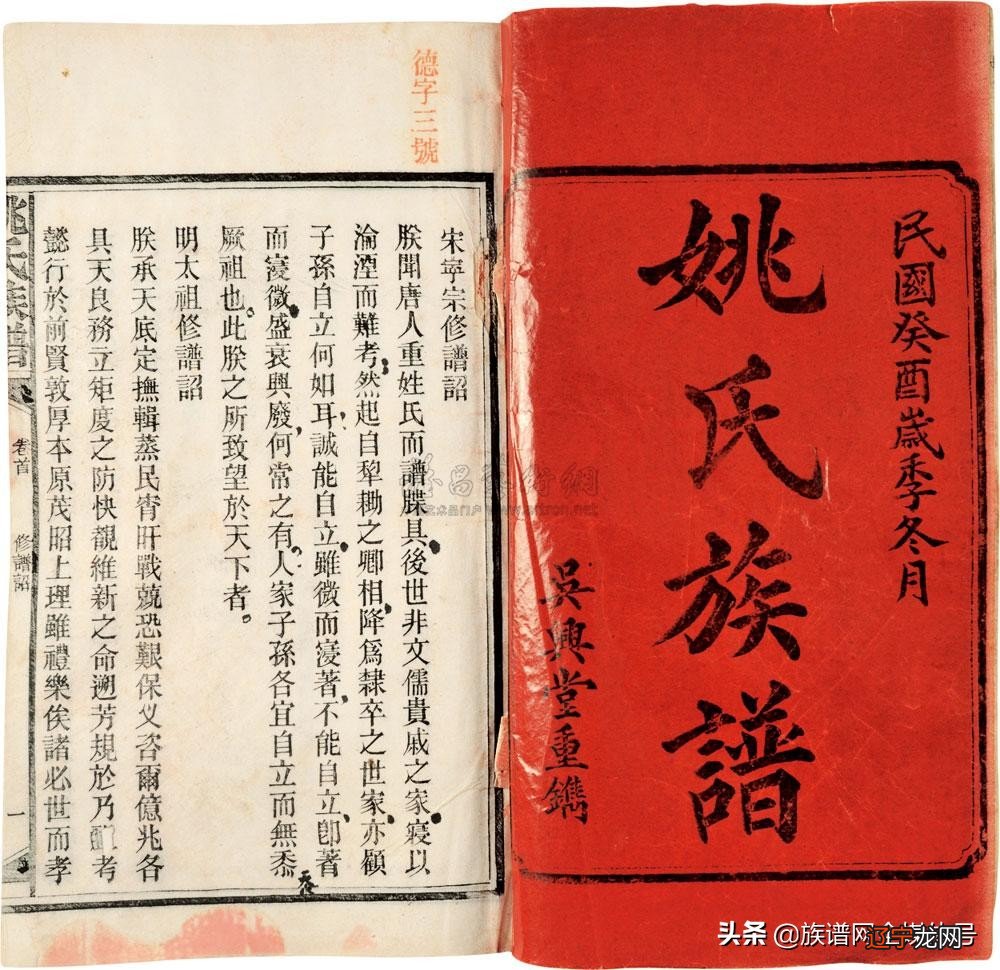 民國癸酉歲季冬月
姚氏族譜
吳興堂重鐫
德字三號
宋寧宗修譜詔
朕聞唐人重姓氏而譜牒具後世非文儒貴戚之家寖以
淪湮而難考然起自犁耡之卿相降為隸卒之世家亦顧
子孫自立何如耳誠能自立雖微而寖著不能自立卽著
而寖微盛衰興廢何常之有人家子孫各宜自立而無忝
厥祖也此朕之所致望於天下者。
明太祖修譜詔
朕承天底定撫輯蒸民宵旰戰兢恐艱保乂咨爾億兆各
具天良務立矩度之防快覩維新之命遡芳規於乃考
懿行於前賢敦厚本原茂昭上理雖禮樂俟諸必世而孝
姚氏族譜
卷首
修譜詔
一
头条 @族谱网
辽宁龙网